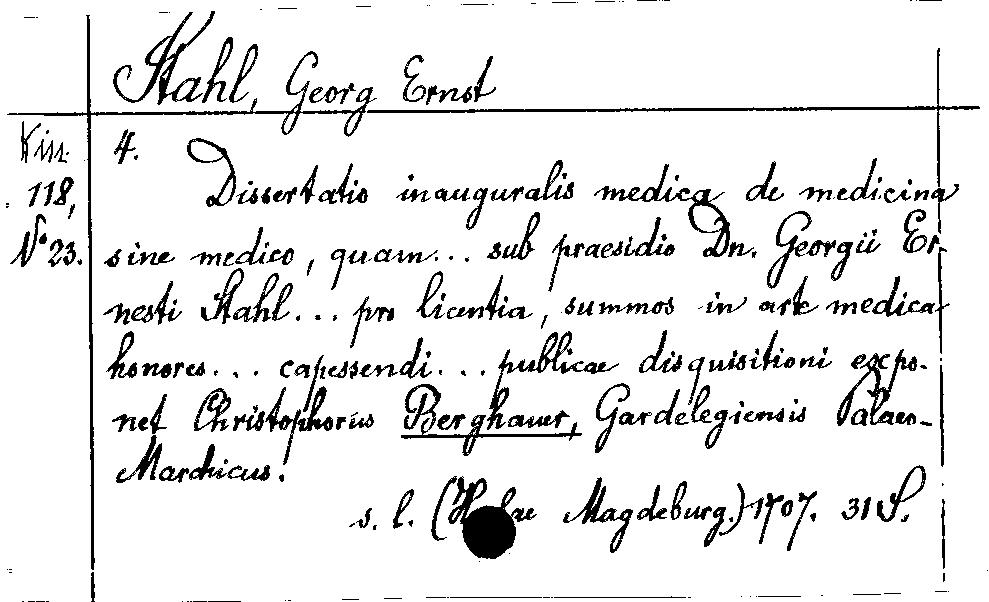 Stahl, Georg Ernst
Kin. 4.
118,
No 23.
Dissertatio inauguralis medica de medicina
sine medico, quam... sub praesidio Dn. Georgii Er-
nesti Stahl... pro licentia, summos in arte medica
honores... capessendi... publicae disquisitioni expo-
net Christophorus Berghauer, Gardelegiensis Palaeo-
Marchicus.
s. l. (Magdeburg.) 1707. 31 S.